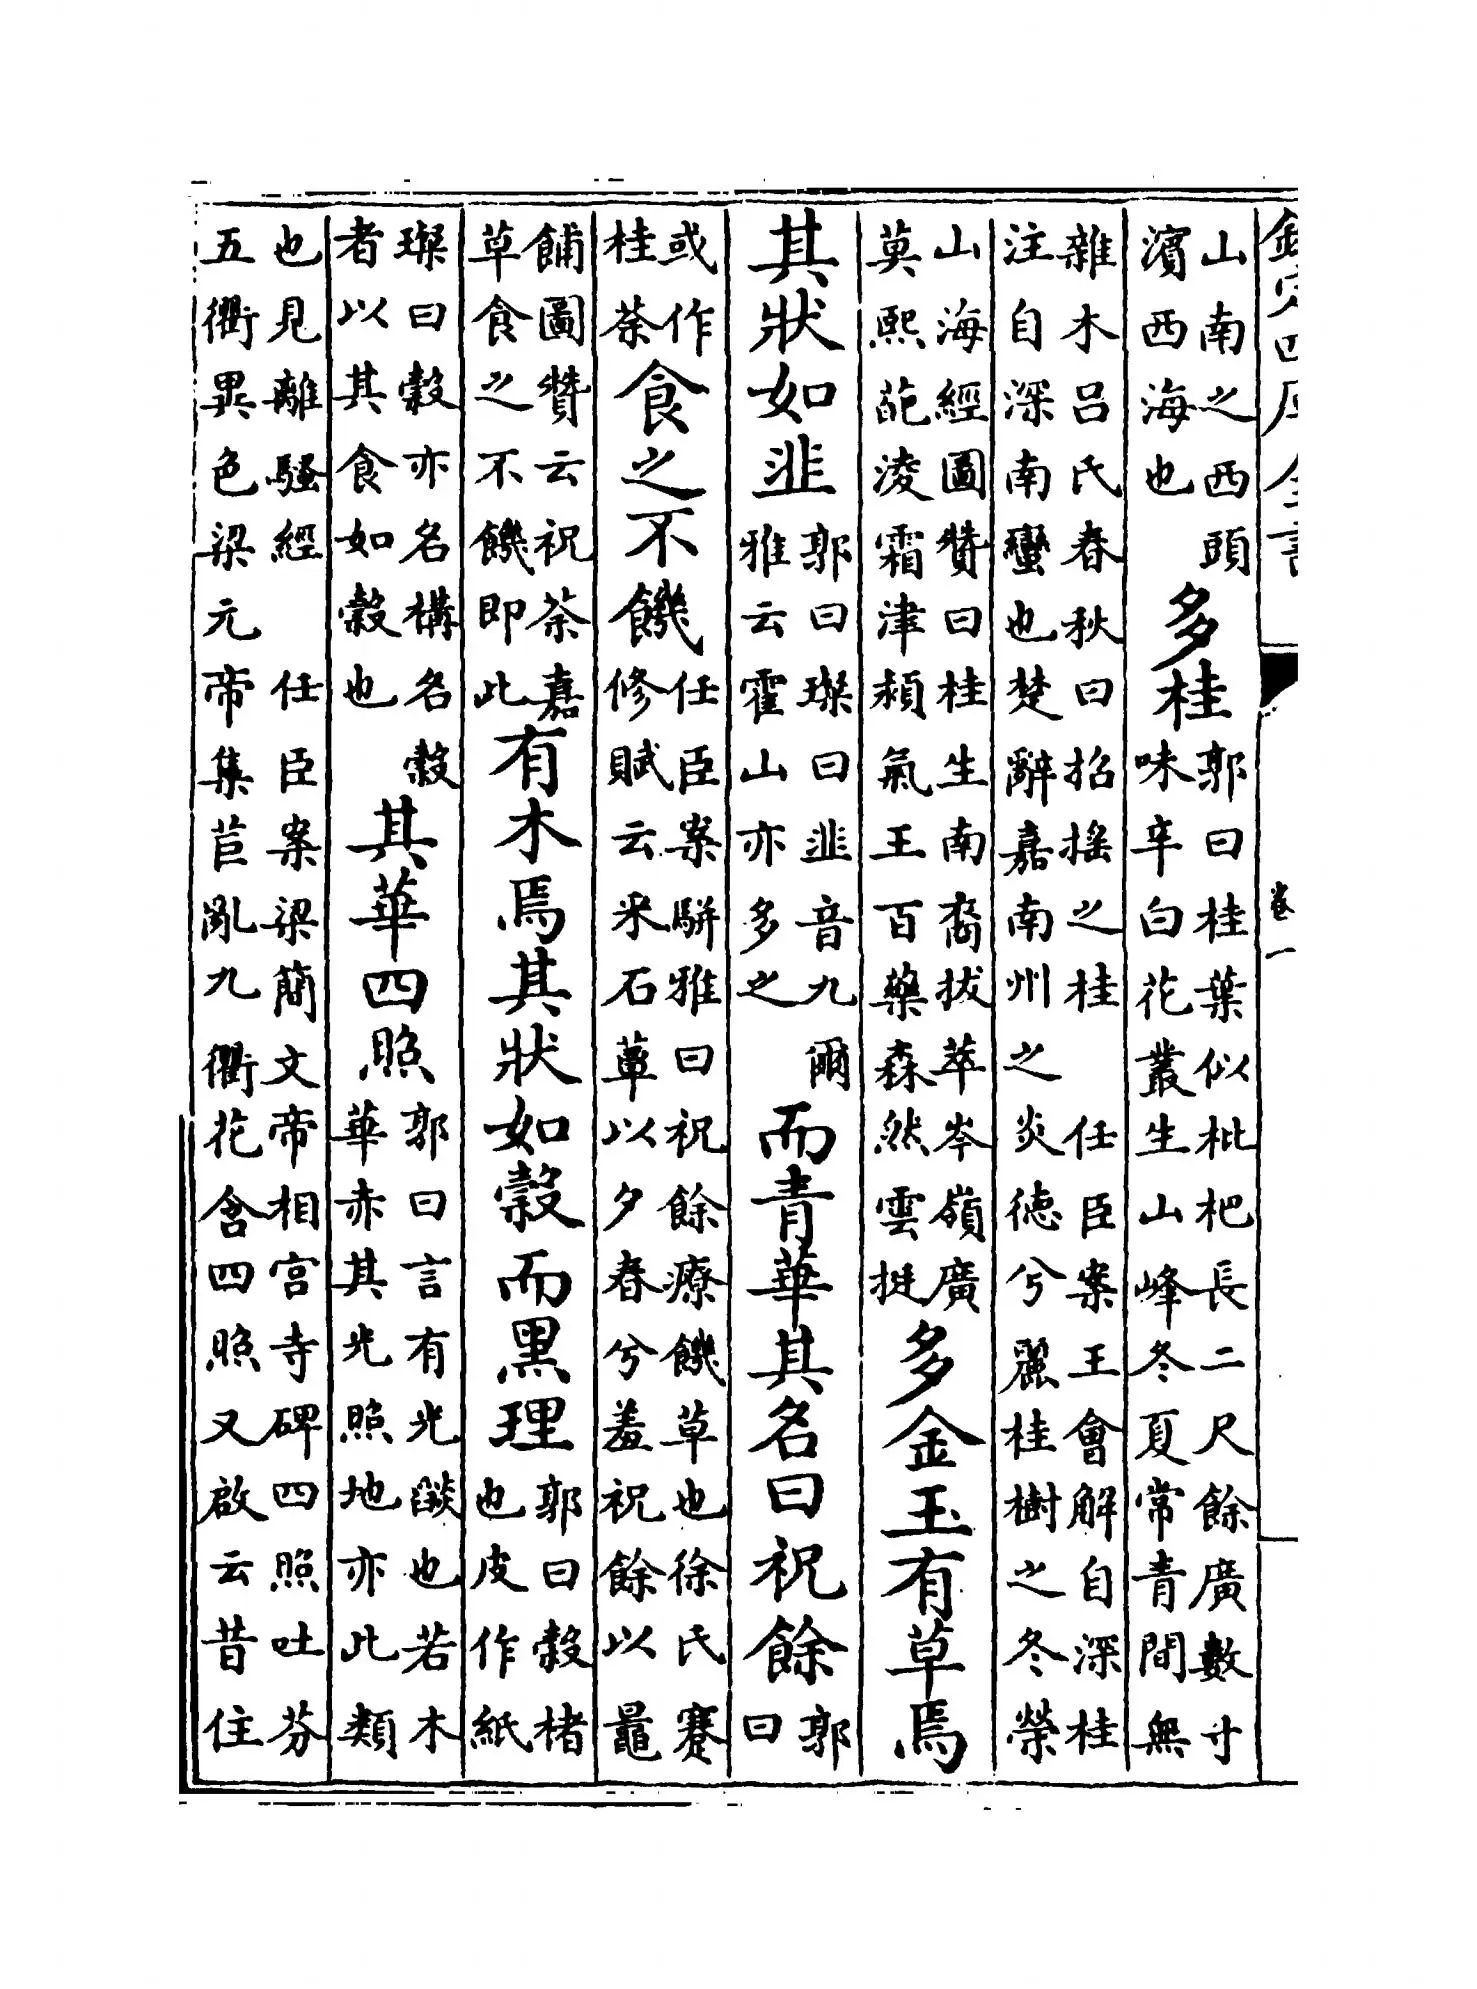 欽定四庫全書
卷一
山南之西頭濱西海也多桂郭曰桂葉似枇杷長二尺餘廣數寸味辛白花叢生山峰冬夏常青間無
雜木呂氏春秋曰招搖之桂 任臣案王會解自深桂注自深南蠻也楚辭嘉南州之炎德兮麗桂樹之冬榮
山海經圖贊曰桂生南裔拔萃岑嶺廣莫熙葩凌霜津穎氣王百藥森然雲挺多金玉有草焉
其狀如韭郭曰璨曰韭音九爾雅云霍山亦多之而青華其名曰祝餘郭曰
或作桂荼食之不饑任臣案駢雅曰祝餘療饑草也徐氏蹇修賦云采石䔄以夕舂兮羞祝餘以鼂
餔圖贊云祝荼嘉草食之不饑即此有木焉其狀如榖而黑理郭曰榖楮也皮作紙
璨曰榖亦名構名榖者以其食如榖也其華四照郭曰言有光燄也若木華赤其光照地亦此類
也見離騷經 任臣案梁簡文帝相宮寺碑四照吐芬五衢異色梁元帝集苣亂九衢花含四照又啟云昔住